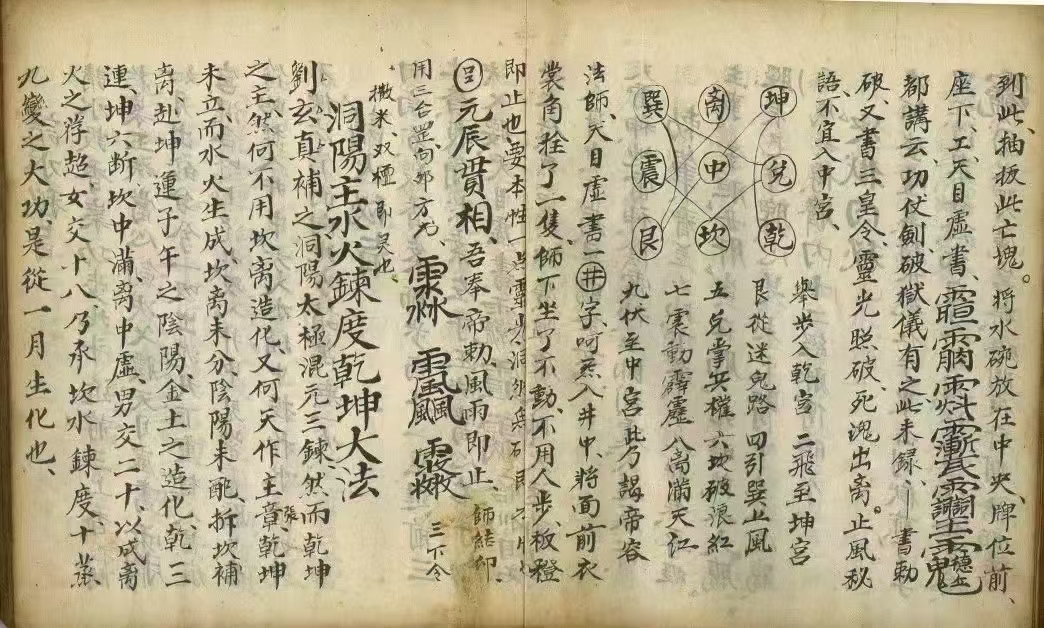 到此、抽扳此亡魂。將水碗放在中央、牌位前、
座下、工、天目虛書、
都講云、功伏劍、破獄儀有之、此未録、書勅
破、又書三皇令、靈光照破、死魂出离。止風秘
語、不宜入中宮、
坤 离 巽
兌 中 震
乾 坎 艮
舉步入乾宮 二飛至坤宮
艮從迷鬼路 四引巽上風
五兌掌兵權 六坎破浪紅
七震動霹靂 八离滿天江
九伏至中宮 此乃謁帝容
法師、天目虛書一井字、呵炁入井中、將面前衣
裳角拴了一隻、師下坐了不動、不用人步、板櫈
即止也、要本性一
元辰貫相、吾奉帝勅、風雨即止、師結印、
用三台罡、向郊方 三下令
撒米、双 即灵也、
洞陽主水火鍊度乾坤大法
劉玄真補之、洞陽太極混元三鍊、然而乾坤
之主、然何不用坎离造化、又何天作主張章、乾坤
未立、而水火生成、坎离未分、陰陽未配、拆坎補
离、赴坤、運子午之陰陽、金土之造化、乾三
連、坤六断、坎中滿、离中虛、男交二十、以成离
火之荐超、女交十八、乃承坎水鍊度、十蒸
九變之大功、是從一月生化也、